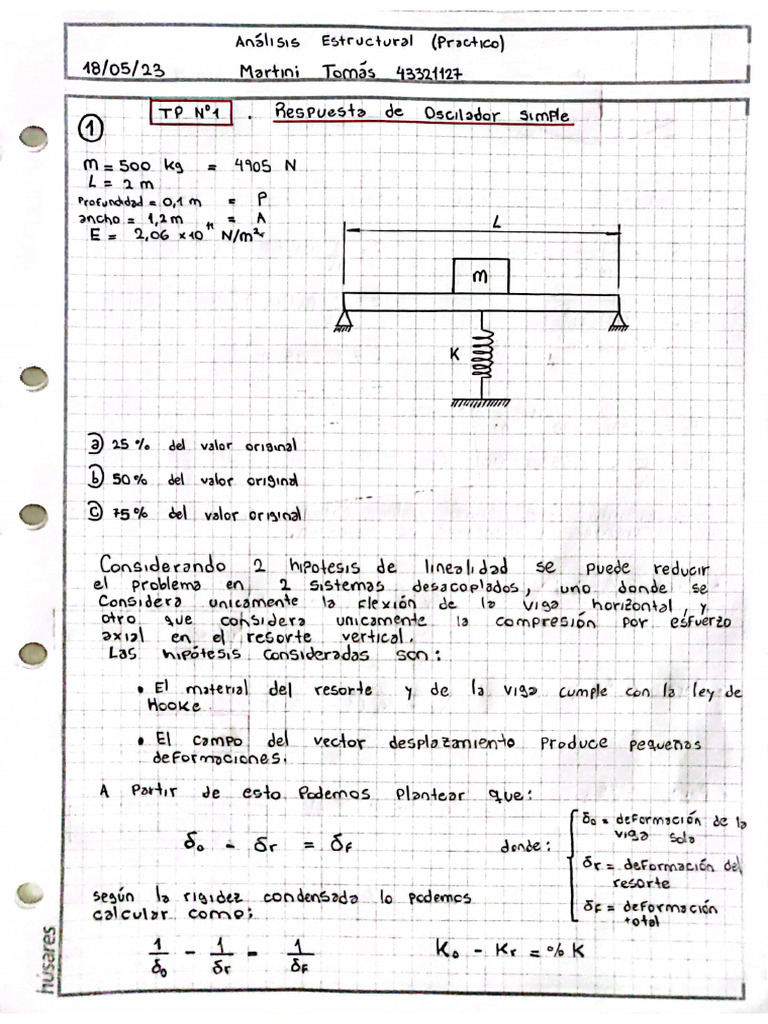 Análisis Estructural (Practico)
18/05/23 Martini Tomás 43321127
TP N°1 . Respuesta de Oscilador simple
1
m = 500 kg = 4905 N
L = 2 m
Profundidad = 0,1 m = P
ancho = 1,2 m = A
E = 2,06 x10¹¹ N/m²
L
m
K
a) 25 % del valor original
b) 50 % del valor original
c) 75 % del valor original
Considerando 2 hipotesis de linealidad se puede reducir
el problema en 2 sistemas desacoplados, uno donde se
considera unicamente la flexión de la viga horizontal, y
otro que considera unicamente la compresión por esfuerzo
axial en el resorte vertical.
Las hipótesis consideradas son:
• El material del resorte y de la viga cumple con la ley de
Hooke.
• El campo del vector desplazamiento produce pequeñas
deformaciones.
A partir de esto podemos plantear que:
δo - δr = δf donde:
δo = deformación de la
viga sola
δr = deformación del
resorte
δf = deformación
total
según la rigidez condensada lo podemos
calcular como:
1/δo - 1/δr = 1/δf Ko - Kr = % K
húsares